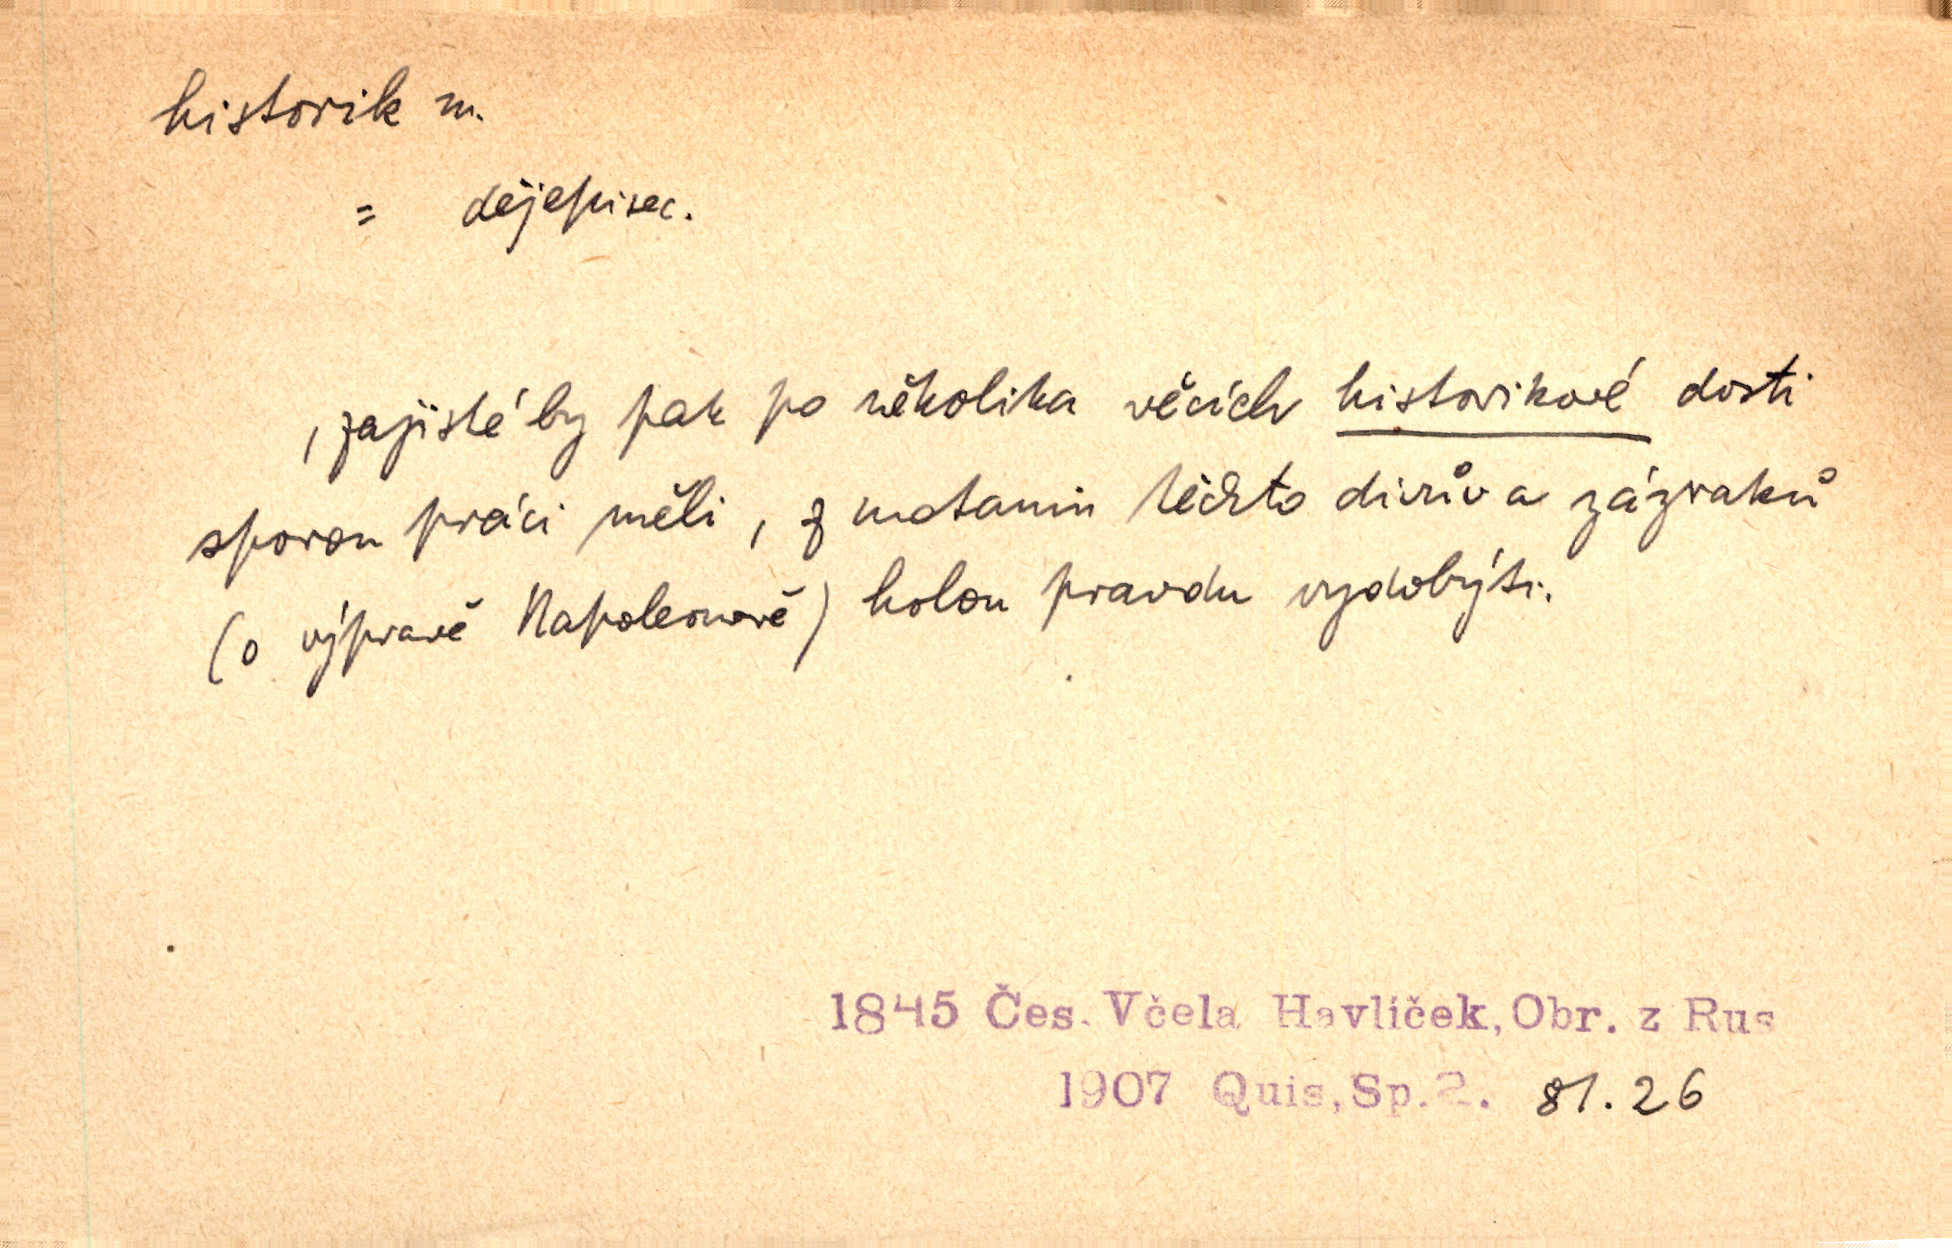 historik m.
= dějepisec.
, zajisté by pak po několika věcích historikové dosti
sporou práci měli, z motanin těchto divův a zázraků
(o výpravě Napoleonově) holou pravdu vydobýti.
1845 Čes. Včela Havlíček, Obr. z Rus
1907 Quis, Sp. 2. 81. 26